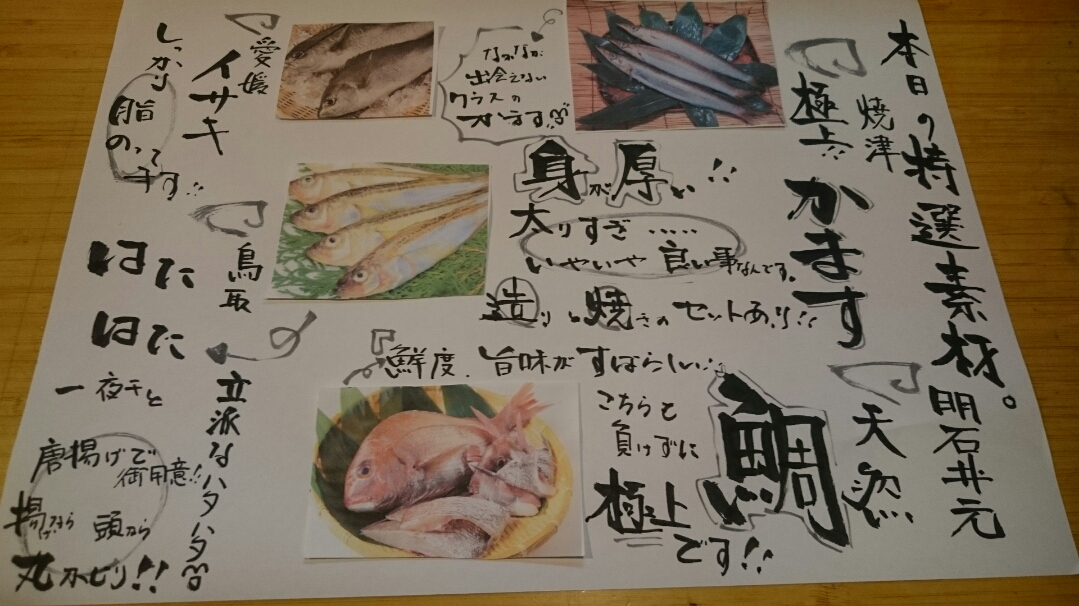 本日の特選素材。
焼津
極上!!
かます
なかなか
出会えない
クラスの
かますです
身が厚い!!
太りすぎ.....
いやいや 良い事なんです。
造りと焼きのセットあり!!
明石
天然
鯛
鮮度、旨味がすばらしい!!
こちらも
負けずに
極上
です!!
愛媛
イサキ
しっかり
脂
のって
ます!!
鳥取
はた
はた
立派なハタハタ
一夜干と
唐揚げで
御用意!!
揚げなら
頭から
丸カビリ!!